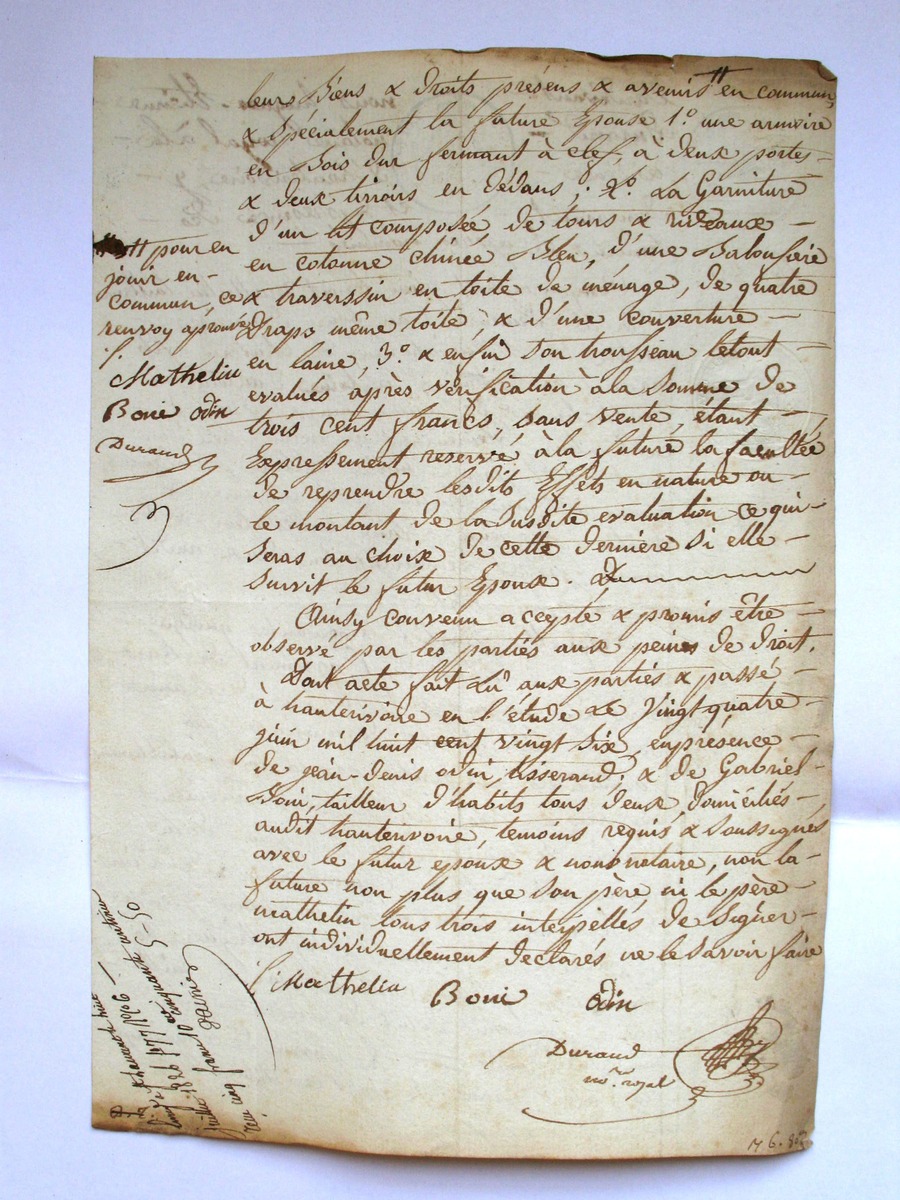 leurs Biens & droits présens & avenirs # en commun,
& spécialement la future Epouse 1.o une armoire
en Bois dur fermant à clef, à deux portes -
& deux tirroirs en dédans; 2.o La Garniture
d'un lit composée de tours & rideaux -
en cotonne chinée Bleu, d'une Balouffière
& traverssin en toile de ménage, de quatre
Draps même toile, & d'une couverture -
en laine, 3.o & enfin son trousseau letout -
evalués après vérification àla somme de
trois cent francs, sans vente, étant -
Expressement reservé àla future la facultée
de reprendre lesdits Effets en nature ou -
le montant de la susdite evaluation ce qui -
seras au choix de cette dernière si elle -
survit le futur Epoux. D
Ainsy convenu accepté & promis être -
observé par les parties aux peines de droit.
Dont acte fait Lû aux parties & passé -
à hauterivoire en l'étude Le Vingt quatre -
juin mil huit cent vingt six, enprésence -
de jean-denis odin, tisserand; & de Gabriel -
Boin, tailleur d'habits tous deux domiciliés -
audit hauterivoire, temoins requis & soussignés
avec le futur epoux & nous notaire, non la -
future non plus que son père, ni le père -
mathelin tous trois interpellés de signer -
ont individuellement declarés ne le savoir faire
Mathelin Boin odin
Durand
no.re royal
# pour en
jouir en -
commun, ce
renvoy aprouvé
Mathelin
Boin odin
Durand
juillet 1826
reçu cinq francs
5-50